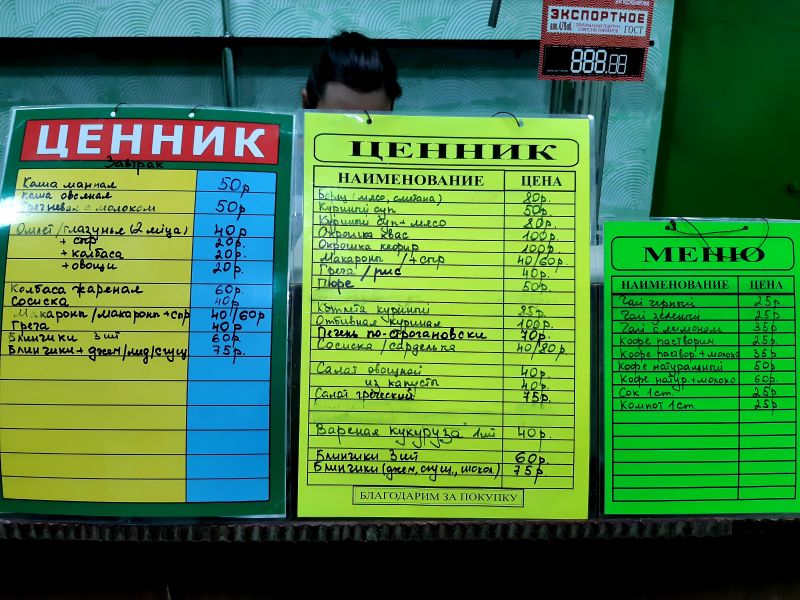 ЭКСПОРТНОЕ
ГОСТ
888.88
ЦЕННИК
Завтрак
Каша манная 50р
Каша овсяная
Гречневая с молоком 50р
Омлет/глазунья (2 яйца) 40р
+ сыр 20р.
+ колбаса 20р.
+ овощи 20р.
Колбаса жареная 60р
Сосиска 40р
Макароны/макароны+сыр 40/60р
Греча 40р
Блинчики 3шт 60р
Блинчики+джем/мёд/сгущ 75р.
ЦЕННИК
НАИМЕНОВАНИЕ ЦЕНА
Борщ (мясо, сметана) 80р.
Куриный суп 50р.
Куриный суп+мясо 80р.
Окрошка квас 100р.
Окрошка кефир 100р.
Макароны /+сыр 40/60р.
Греча/рис 40р.
Пюре 50р.
Котлета куриная
Отбивная куриная 100р.
Печень по-строгановски 70р.
Сосиска/сарделька 40/80р.
Салат овощной 40р.
из капусты 40р.
Салат греческий 75р.
Вареная кукуруза 1шт 40р.
Блинчики 3шт 60р.
Блинчики(джем, сгущ., шокол.) 75р.
БЛАГОДАРИМ ЗА ПОКУПКУ
МЕНЮ
НАИМЕНОВАНИЕ ЦЕНА
Чай черный 25р
Чай зеленый 25р
Чай с лимоном 35р
Кофе растворим. 25р
Кофе раствор+молоко 35р
Кофе натуральный 50р
Кофе натур.+молоко 60р.
Сок 1ст. 25р
Компот 1ст. 25р